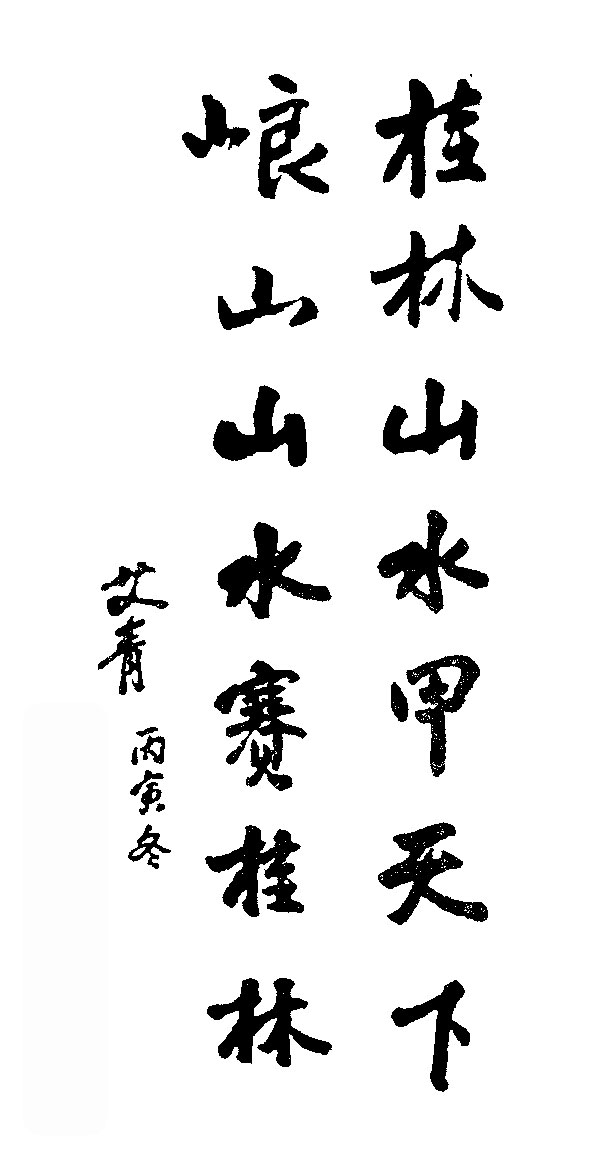 桂林山水甲天下
崀山山水赛桂林
艾青
丙寅冬